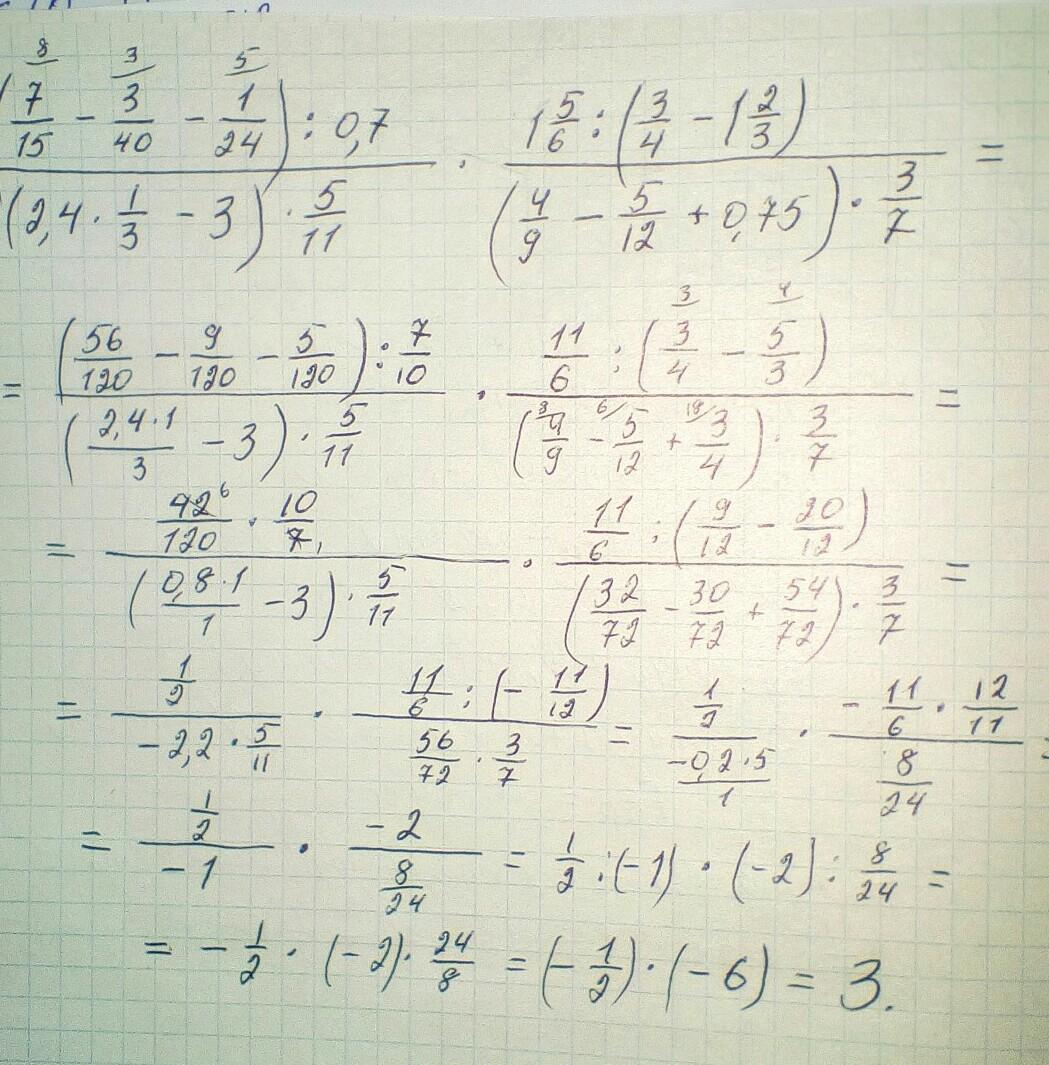 (7/15 - 3/40 - 1/24) : 0,7 / (2,4 · 1/3 - 3) · 5/11 · 1 5/6 : (3/4 - 1 2/3) / (4/9 - 5/12 + 0,75) · 3/7 =
= (56/120 - 9/120 - 5/120) : 7/10 / (2,4·1/3 - 3) · 5/11 · 11/6 : (3/4 - 5/3) / (4/9 - 5/12 + 3/4) · 3/7 =
= 42/120 · 10/7 / (0,8·1/1 - 3) · 5/11 · 11/6 : (9/12 - 20/12) / (32/72 - 30/72 + 54/72) · 3/7 =
= 1/2 / -2,2 · 5/11 · 11/6 : (- 11/12) / 56/72 · 3/7 = 1/2 / -0,2·5/1 · - 11/6 · 12/11 / 8/24 =
= 1/2 / -1 · -2 / 8/24 = 1/2 : (-1) · (-2) : 8/24 =
= - 1/2 · (-2) · 24/8 = (- 1/2) · (-6) = 3.